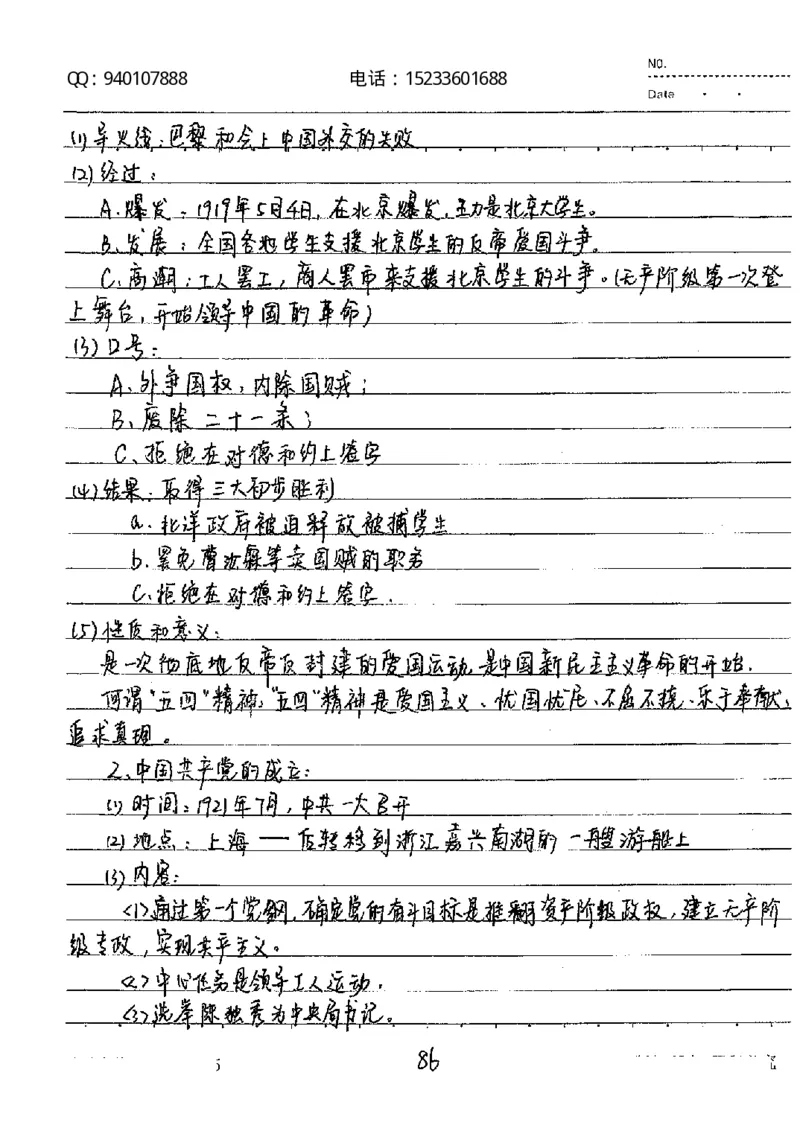 QQ：940107888 电话：15233601688
NO.
Date
(1)导火线：巴黎和会上中国外交的失败
(2)经过：
A.爆发：1919年5月4日,在北京爆发,主力是北京大学生。
B.发展：全国各地学生支援北京学生的反帝爱国斗争.
C.高潮：工人罢工，商人罢市来支援北京学生的斗争。(无产阶级第一次登
上舞台，开始领导中国的革命)
(3)口号：
A.外争国权，内除国贼；
B.废除二十一条；
C.拒绝在对德和约上签字
(4)结果：取得三大初步胜利
a.北洋政府被迫释放被捕学生
b.罢免曹汝霖等卖国贼的职务
C.拒绝在对德和约上签字.
(5)性质和意义：
是一次彻底地反帝反封建的爱国运动,是中国新民主主义革命的开始.
何谓"五四"精神："五四"精神是爱国主义、忧国忧民、不屈不挠、乐于奉献、
追求真理。
2、中国共产党的成立：
(1)时间：1921年7月，中共一大召开
(2)地点：上海 — 后转移到浙江嘉兴南湖的一艘游船上
(3)内容：
<1>通过第一个党纲,确定党的奋斗目标是推翻资产阶级政权，建立无产阶
级专政，实现共产主义。
<2>中心任务是领导工人运动.
<3>选举陈独秀为中央局书记。
86